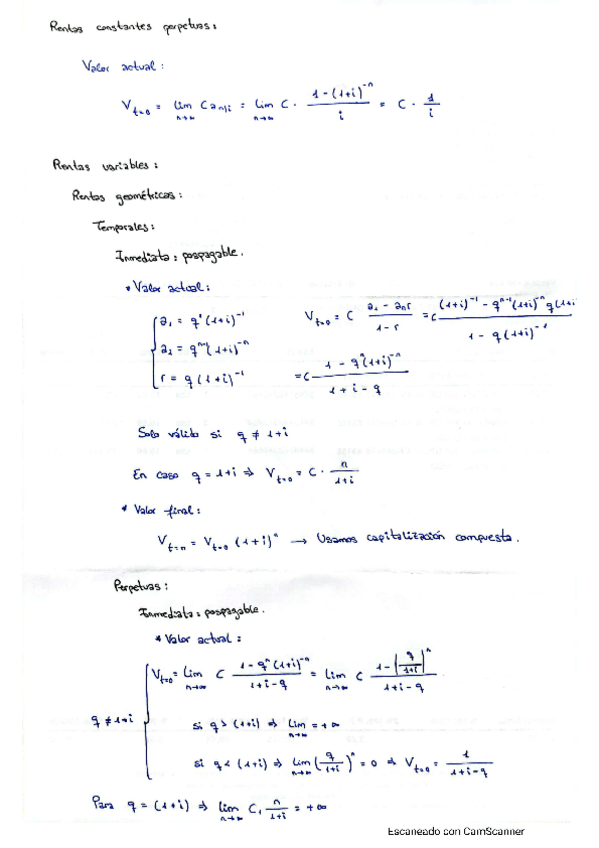 Rentas constantes perpetuas:
Valor actual:
V_{t=0} = lim_{n→∞} C a_{n¬i} = lim_{n→∞} C · (1-(1+i)^{-n})/i = C · 1/i
Rentas variables:
Rentas geométricas:
Temporales:
Inmediata: pospagable.
* Valor actual:
a₁ = q¹(1+i)^{-1}
a₂ = q^{n-1}(1+i)^{-n}
r = q(1+i)^{-1}
V_{t=0} = C (a₁ - aₙr)/(1-r) = C ((1+i)^{-1} - q^{n-1}(1+i)^{-n} q(1+i)/(1 - q(1+i)^{-1})
= C (1 - qⁿ(1+i)^{-n})/(1+i-q)
Solo válido si q ≠ 1+i
En caso q = 1+i ⇒ V_{t=0} = C · n/(1+i)
* Valor final:
V_{t=n} = V_{t=0} (1+i)ⁿ → Usamos capitalización compuesta.
Perpetuas:
Inmediata: pospagable.
* Valor actual:
q ≠ 1+i
V_{t=0} = lim_{n→∞} C (1-qⁿ(1+i)^{-n})/(1+i-q) = lim_{n→∞} C (1-(q/(1+i))ⁿ)/(1+i-q)
si q > (1+i) ⇒ lim_{n→∞} = +∞
si q < (1+i) ⇒ lim_{n→∞} (q/(1+i))ⁿ = 0 ⇒ V_{t=0} = 1/(1+i-q)
Para q = (1+i) ⇒ lim_{n→∞} C · n/(1+i) = +∞
Escaneado con CamScanner